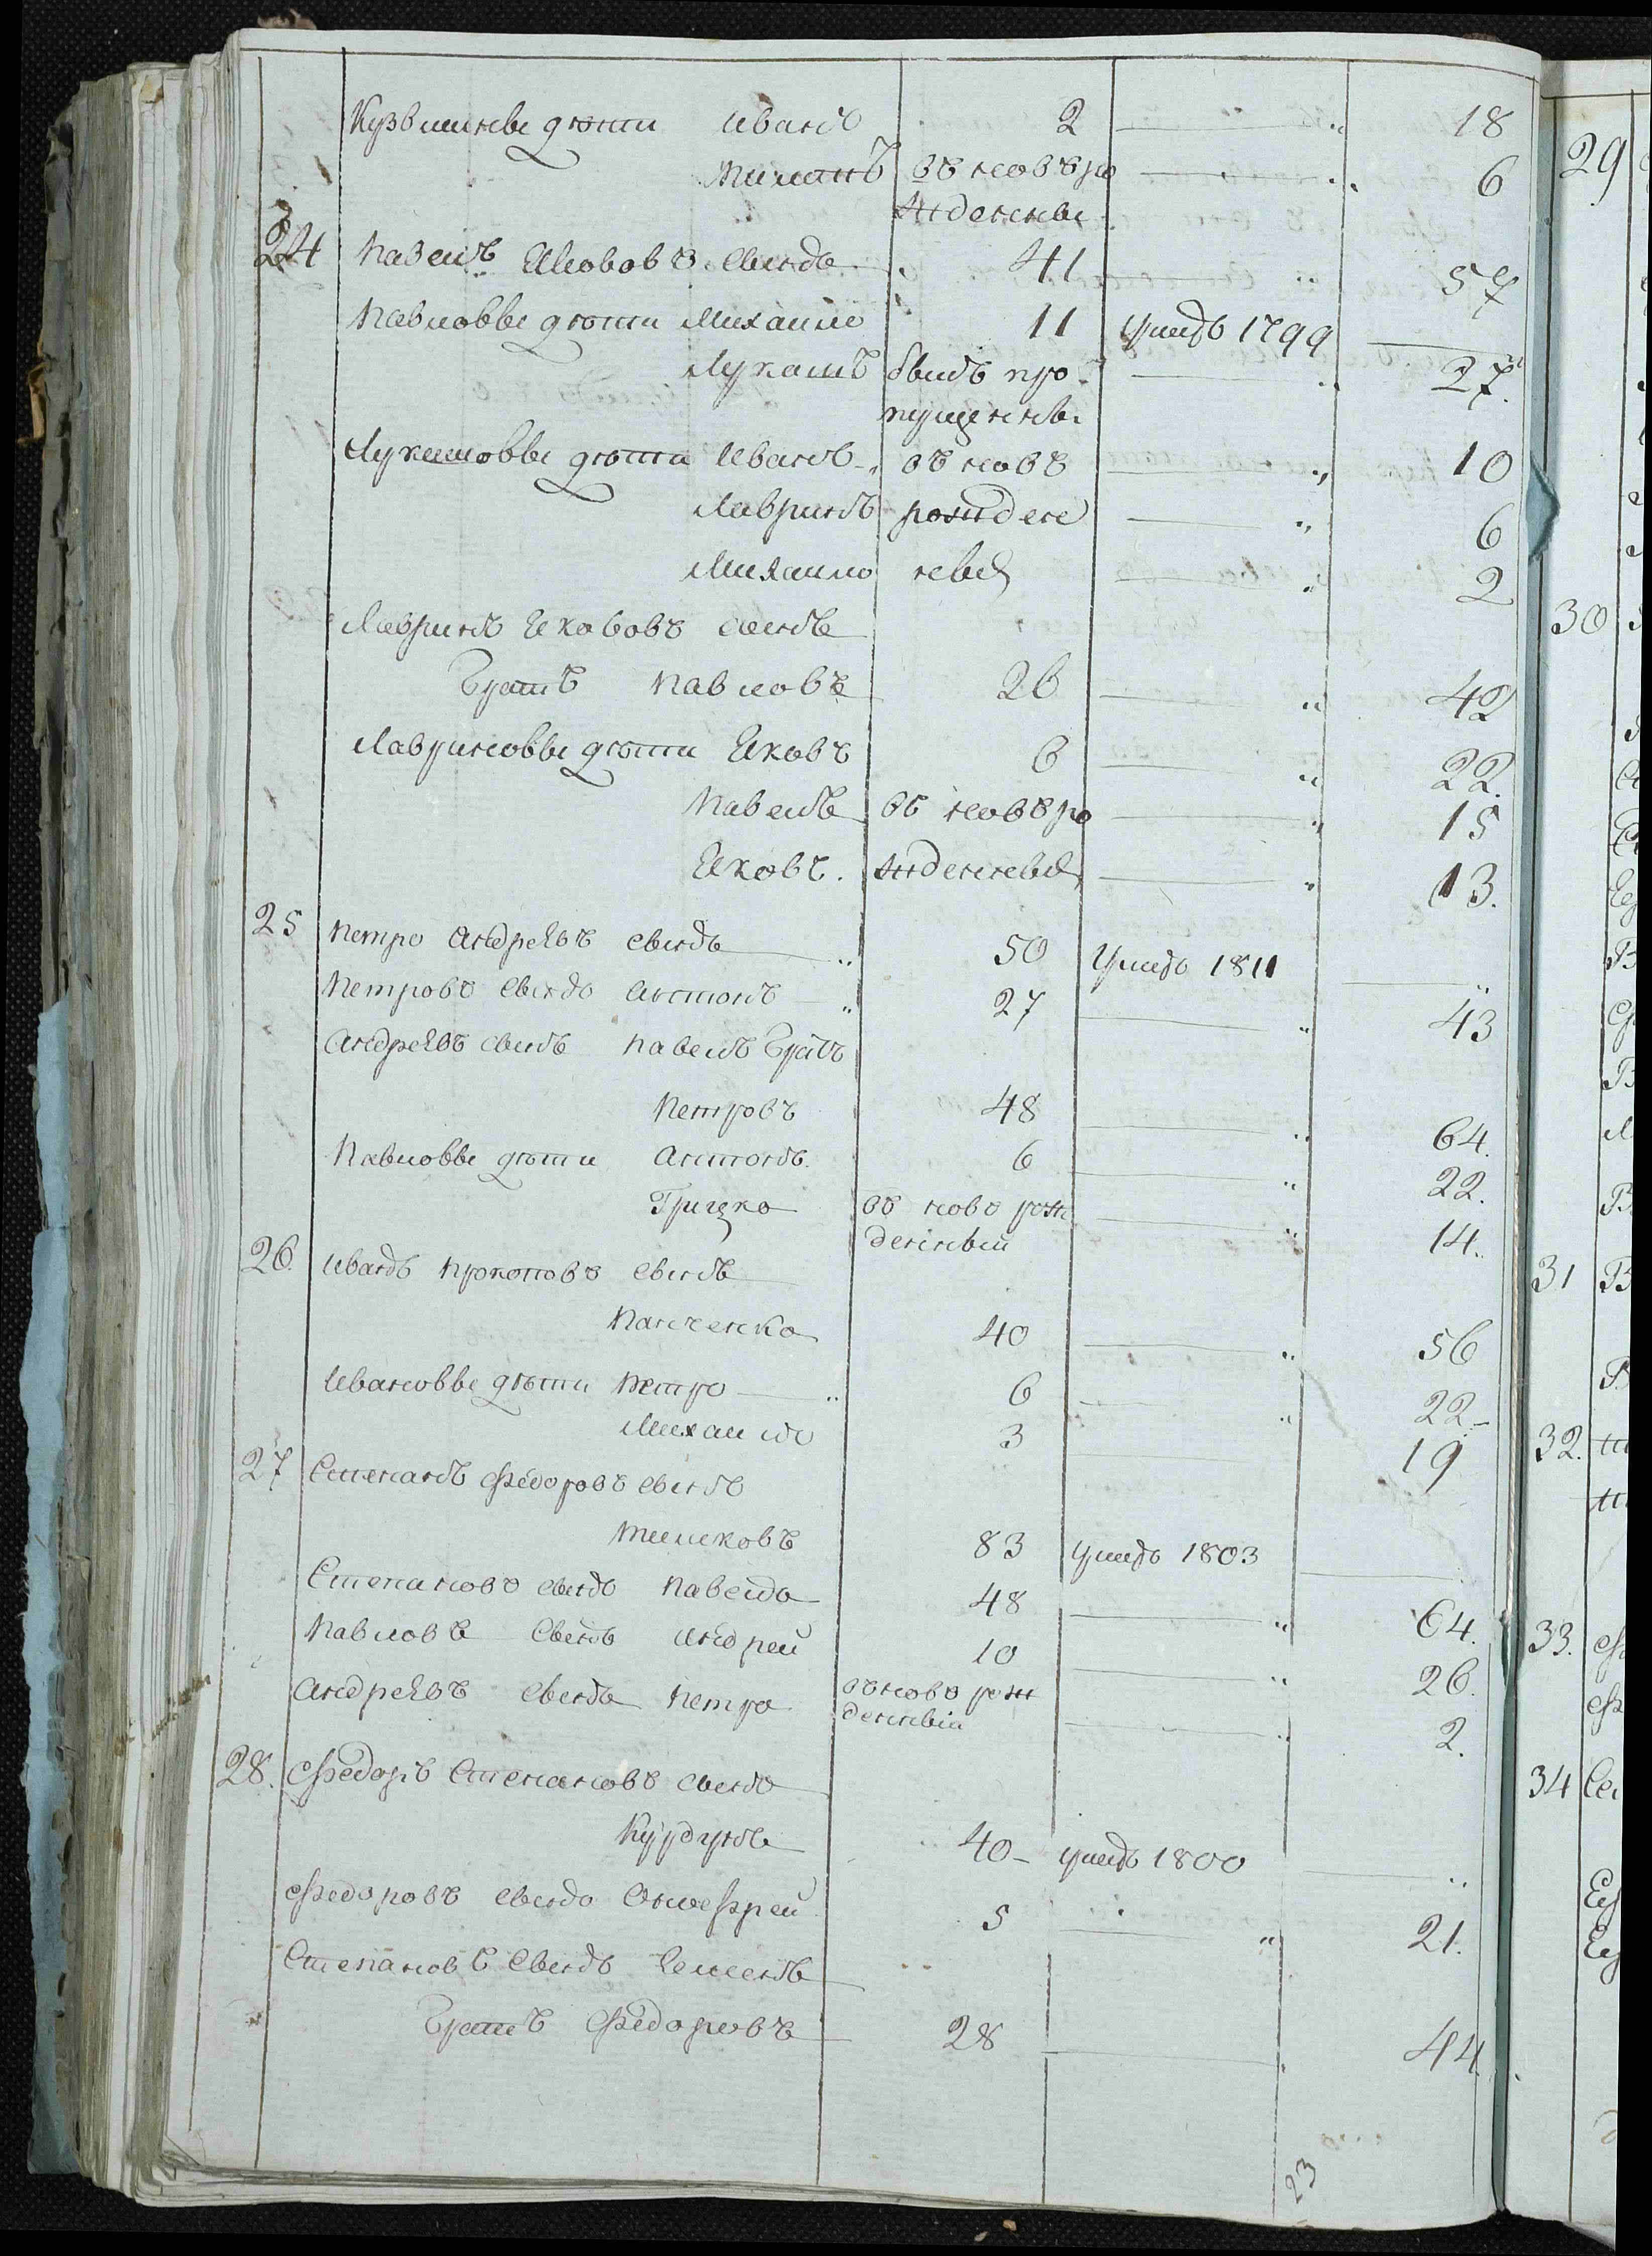 Кузьмины дѣти Иванъ 2 — " 18
въ новѣ ро — " 6
жденны
24 Павелъ Якововъ сынъ 41 — " 57
Павловы дѣти Михайло 11 умеръ 1799 —
Лукашъ былъ про — " 27.
пущенны
Лукашовы дѣти Иванъ въ новѣ — " 10
Лавринъ рожден — " 6
Михайло ныя — " 2
Лавринъ Якововъ сынъ
братъ Павловъ 26 — " 42
Лавриновы дѣти Яковъ 6 — " 22.
Павелъ въ новѣ ро — " 15
Яковъ. жденныя — " 13.
25 Петро Андреевъ сынъ 50 умеръ 1811 — "
Петровъ сынъ Антонъ 27 — " 43
Андреевъ сынъ Павелъ братъ
Петровъ 48 — " 64.
Павловы дѣти Антонъ. 6 — " 22.
Грицко въ ново рож — " 14.
денный
26. Иванъ Прокоповъ сынъ
Панченко 40 — " 56
Ивановы дѣти Петро — " 6 — " 22 -
Михайло 3 — 19
27 Степанъ Федоровъ сынъ
83 умеръ 1803 —
Степановъ сынъ Павелъ 48 — " 64.
Павловъ сынъ Андрей 10 — " 26.
Андреевъ сынъ Петро въ ново рож — " 2.
денный
28. Федоръ Степановъ сынъ
40 - умеръ 1800 — "
Федоровъ сынъ Онофрей 5 — " 21.
Степановъ сынъ Семенъ
братъ Федоровъ 28 — 44.
23
29
30
31
32.
33.
34